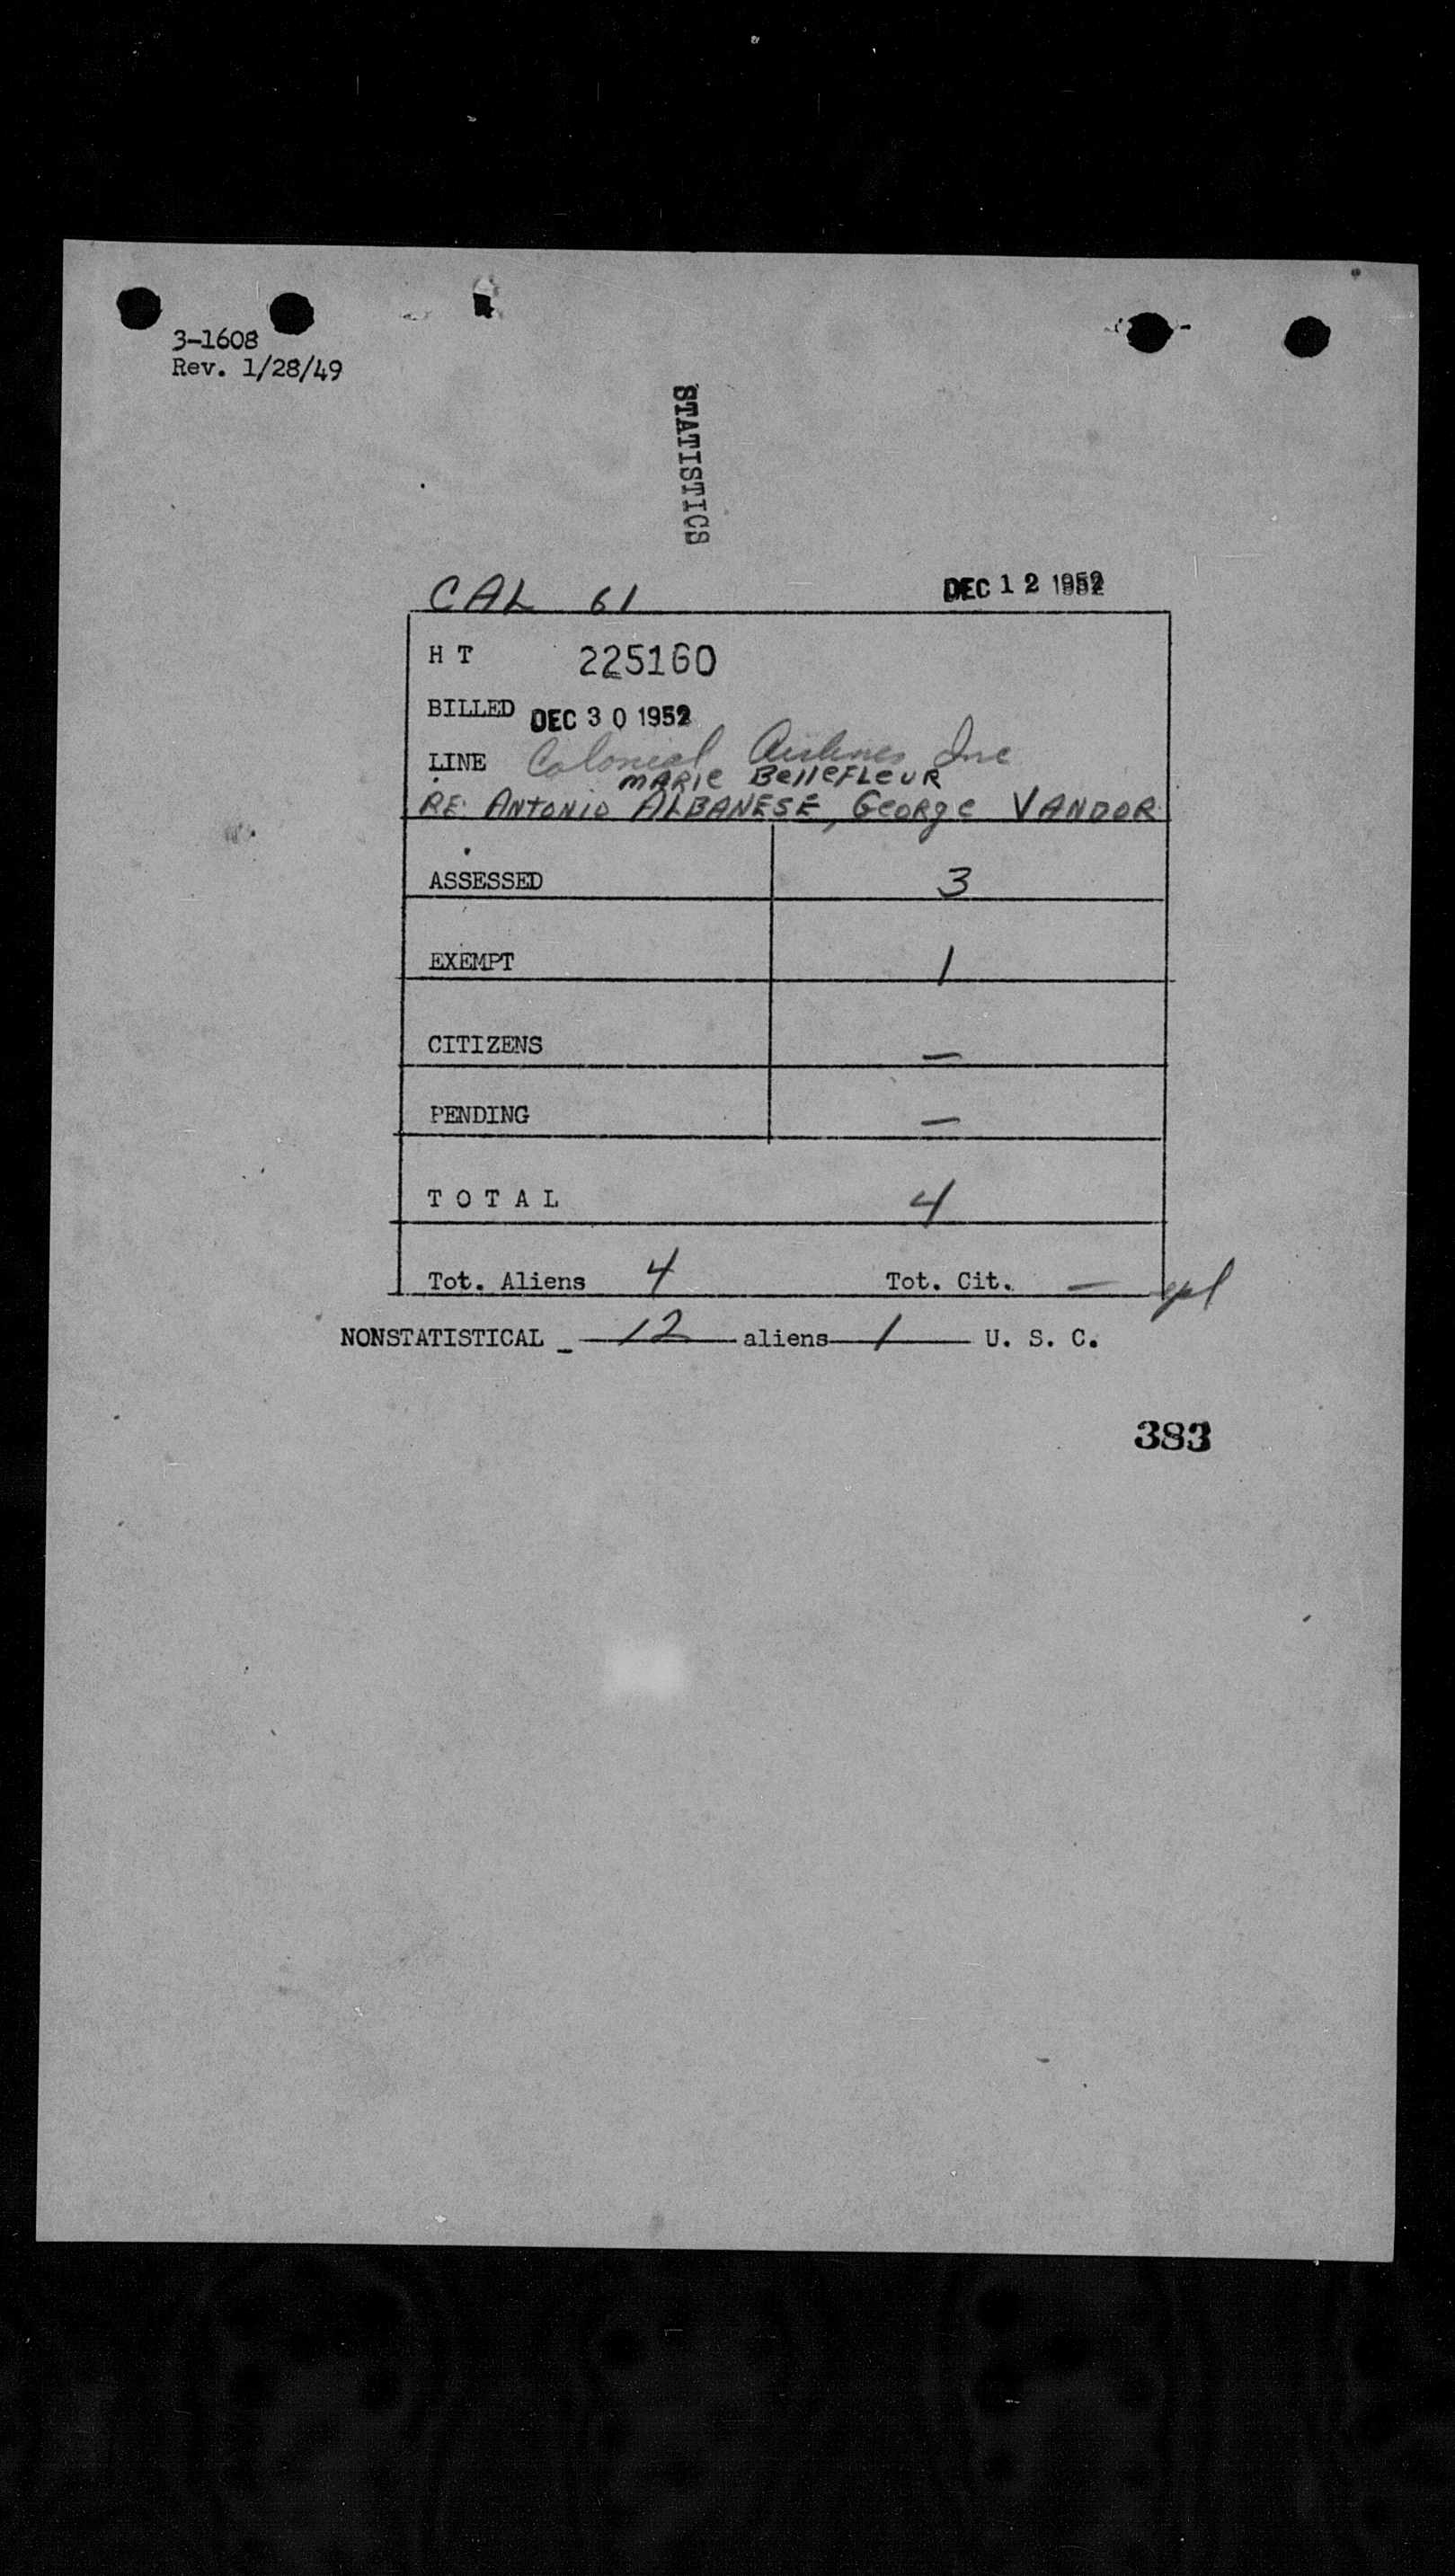 3-1608
Rev. 1/28/49
STATISTICS
CAL 61 DEC 12 1952
H T 225160
BILLED DEC 30 1952
LINE Colonial Airlines Inc
MARIE BelleFLeUR
RE: ANTONIO ALBANESE, GeORge VANDOR
ASSESSED 3
EXEMPT 1
CITIZENS —
PENDING —
T O T A L 4
Tot. Aliens 4 Tot. Cit. —
NONSTATISTICAL - 12 aliens 1 U. S. C.
383